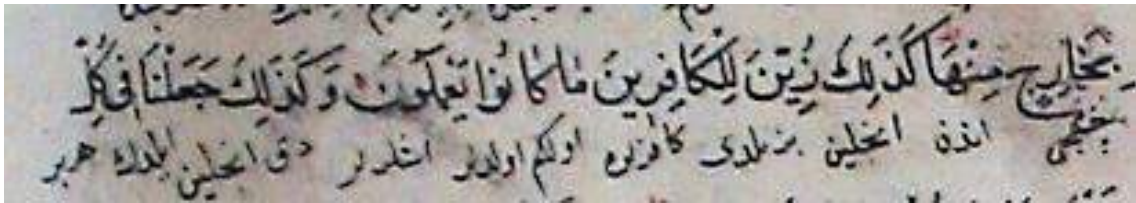 بِخَارِجٍ مِنْهَا كَذَلِكَ زُيِّنَ لِلْكَافِرِينَ مَا كَانُوا يَعْمَلُونَ وَكَذَلِكَ جَعَلْنَا فِي كُلِّ
چقیجی اندن انجلین بزندی كافرلره اولكم اولدیلر اشلرلر دقی انجلین ایلدك هر بر